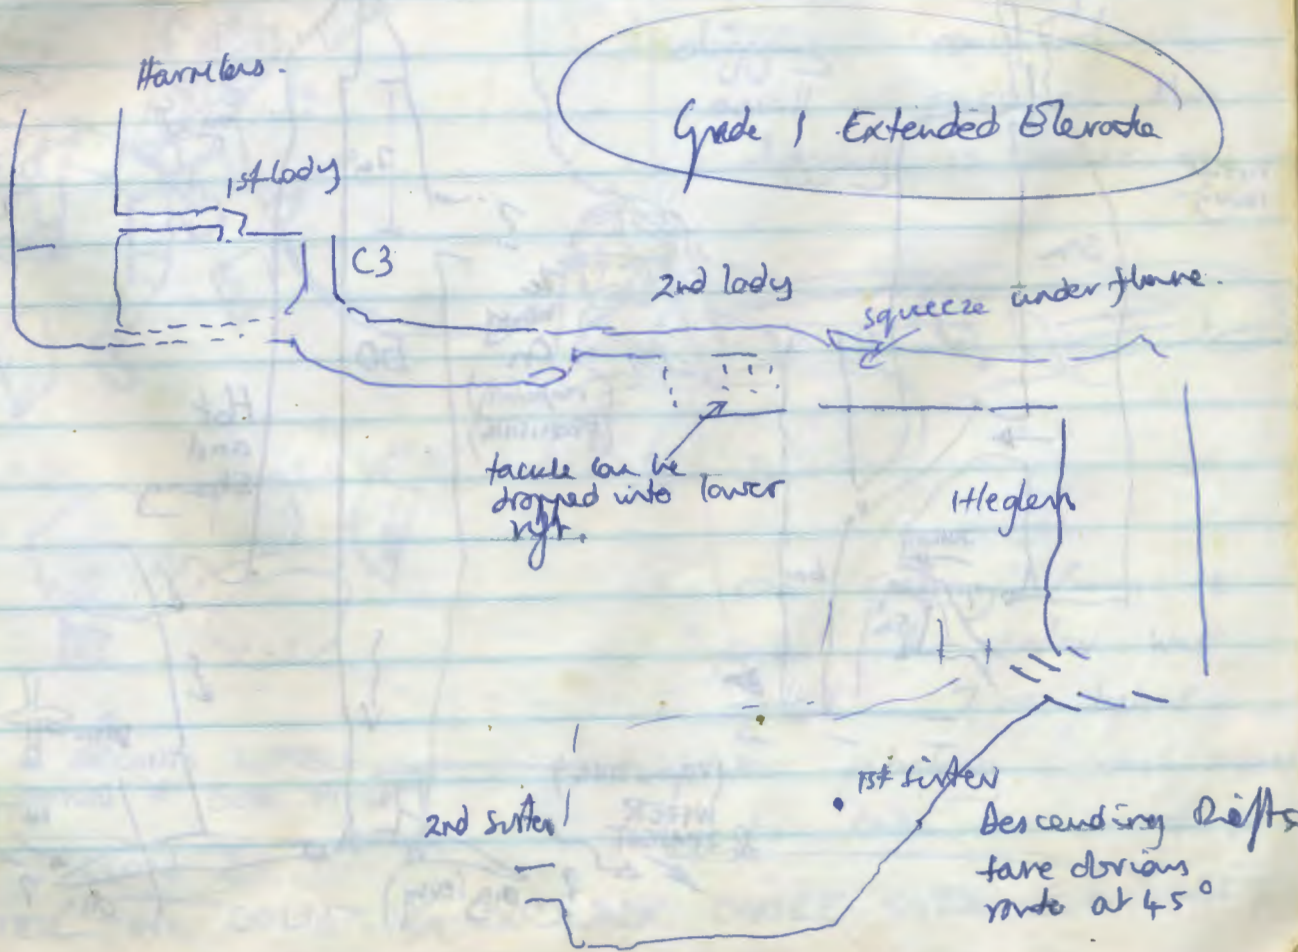 Grade 1 Extended Elevation
1st lady
C3
2nd lady
squeeze under flake.
tackle can be
dropped into lower
rift.
1st sister
2nd sister
Descending Rifts
take obvious
route at 45°